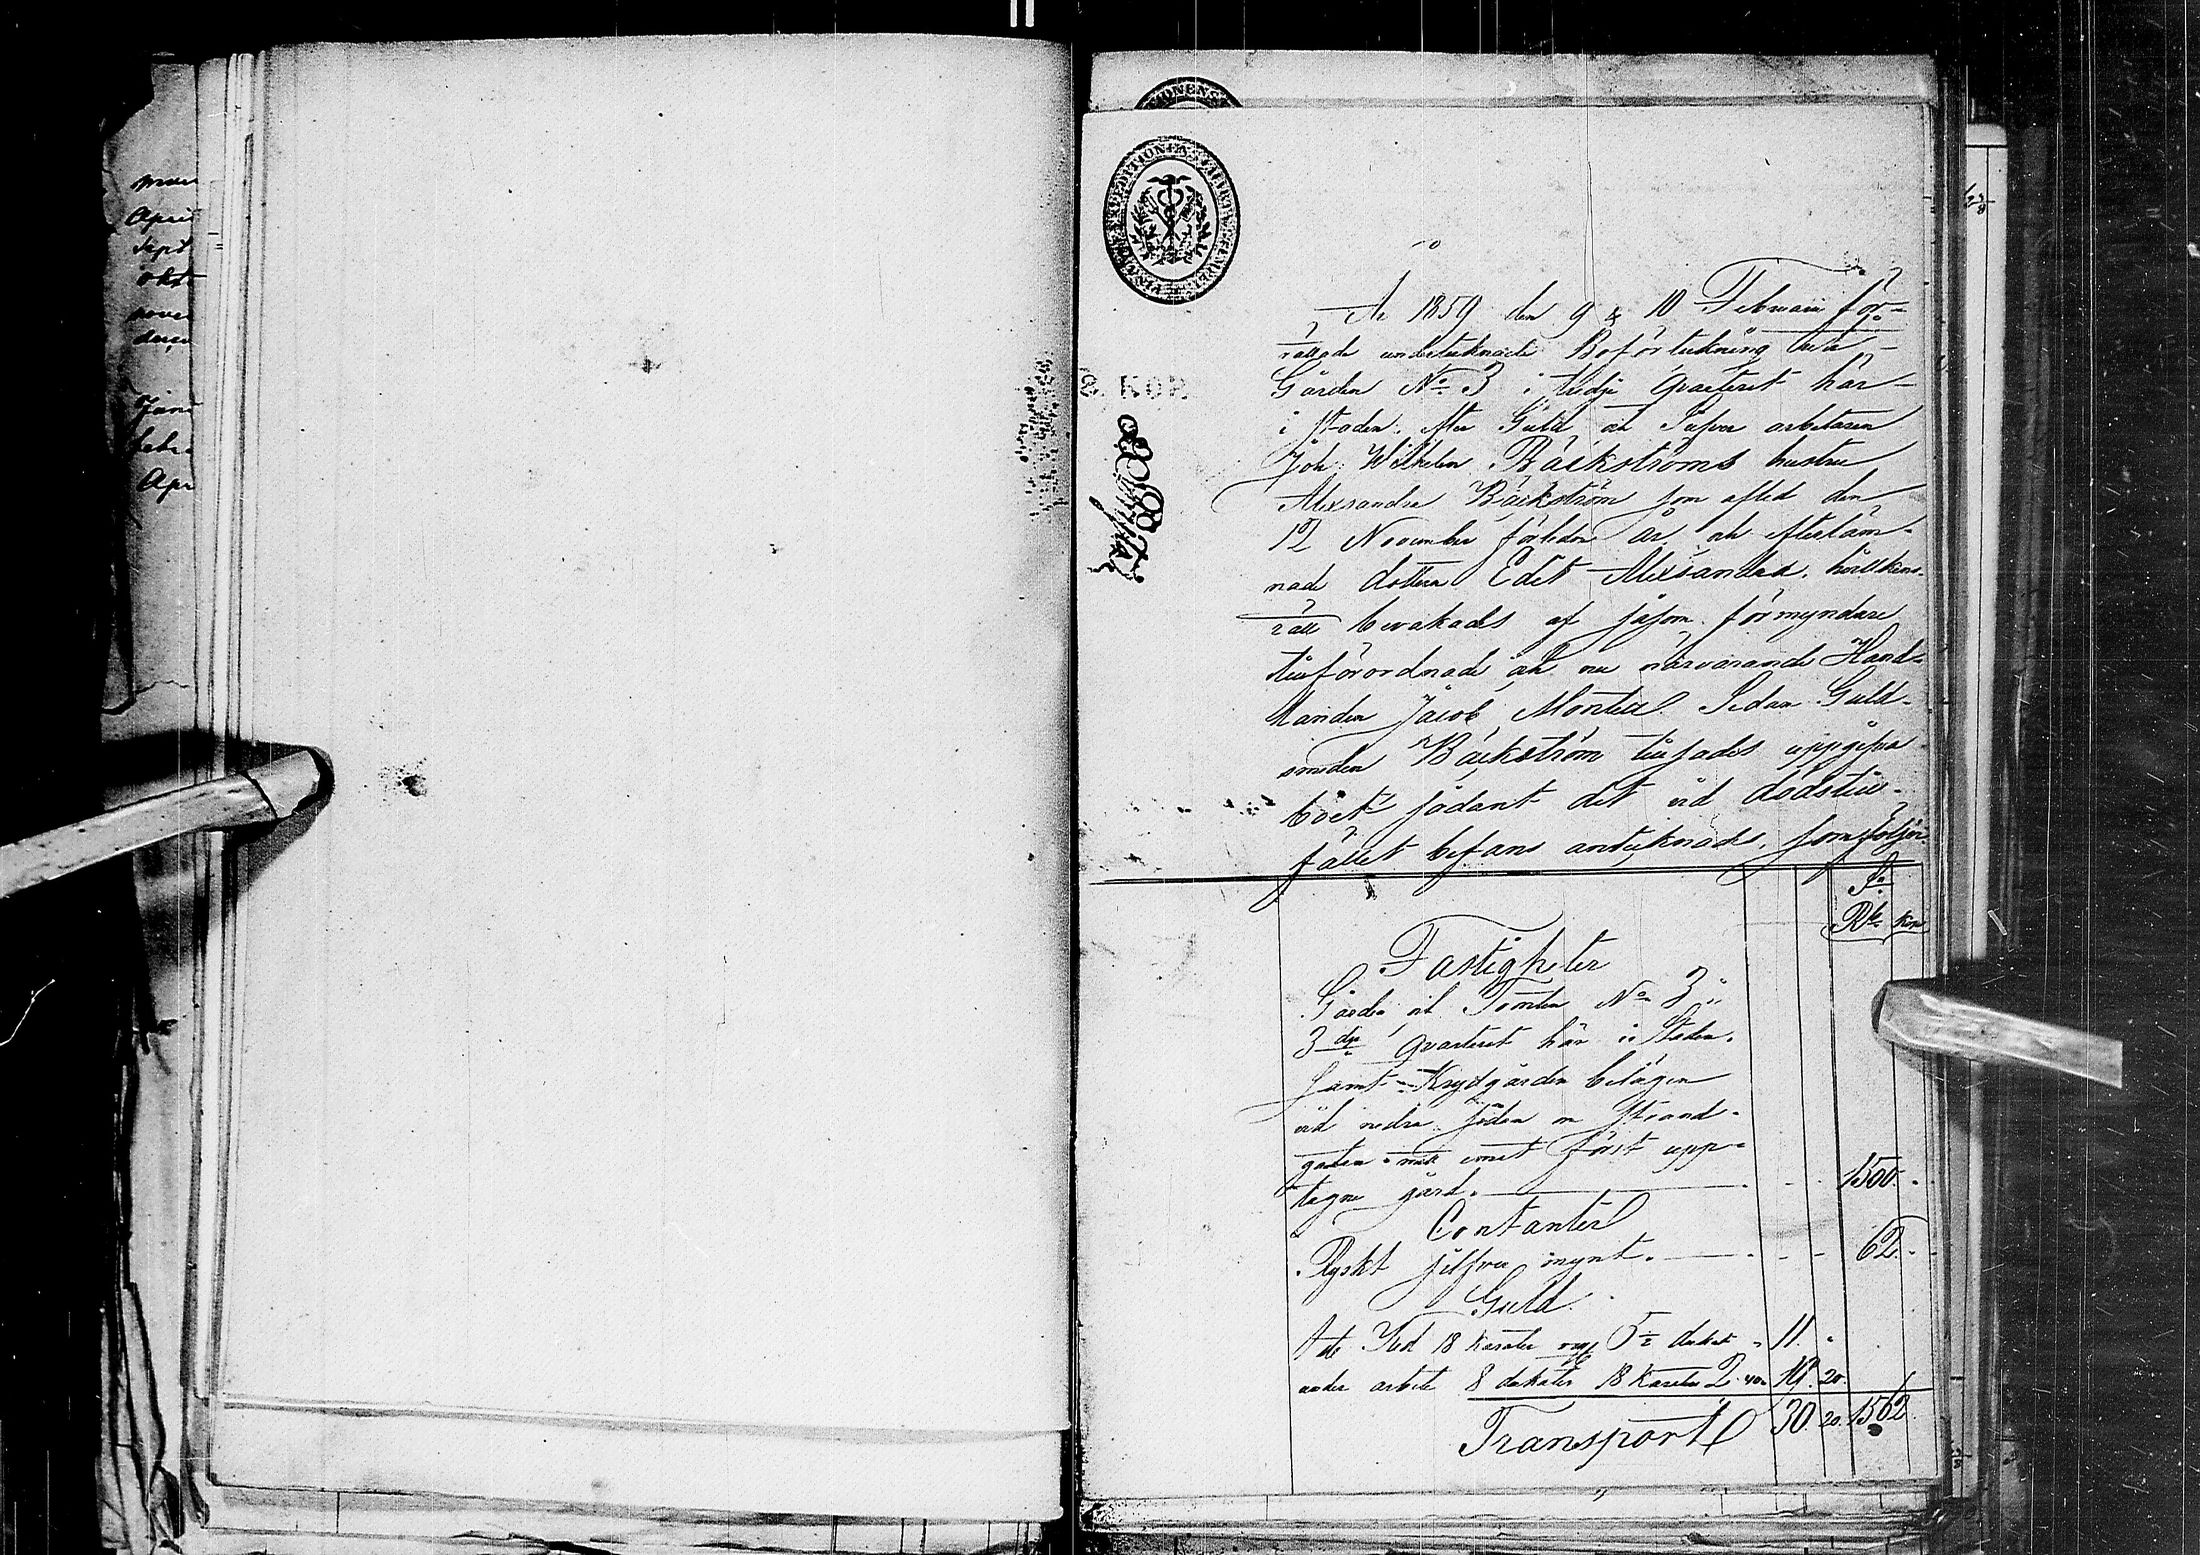 mar
April
Sept
okt
nove
dece
Janu
febr
Apr
EXPEDITIONENS
8 KOP.
År 1859 den 9 & 10 Februari för-
rättade undertecknade Boförteckning uti
Gården No 3 i tredje Qvarteret här
i staden, efter Guld och Silfver arbetaren
Joh: Wilhelm Bäckströms hustru
Alexsandra Bäckström som afled den
12 November förledne år och efterläm-
nade dottern Edet Alexsandra, hvilkens
rätt bevakades af såsom förmyndare
tillförordnade och nu närvarande Hand-
landen Jacob Montell. Sedan Guld-
smeden Bäckström tillsades uppgifva
boet sådant det vid dödstill-
fället befans antecknades, som följer.
Sr
Rbl kop
Fastigheter
Gården och Tomten No 3 i
3dje Qvarteret här i Staden,
samt Krydgården belägen
vid nedra sidan om Strand-
gatan emot först upp-
tagne gård. 1500.
Contanter
Ryskt silfver mynt. 62.
Guld
18 karater 5½ dukat 11.
arbete 8 dukater 18 karater 2.40 19. 20.
Transport 30. 20. 1562.